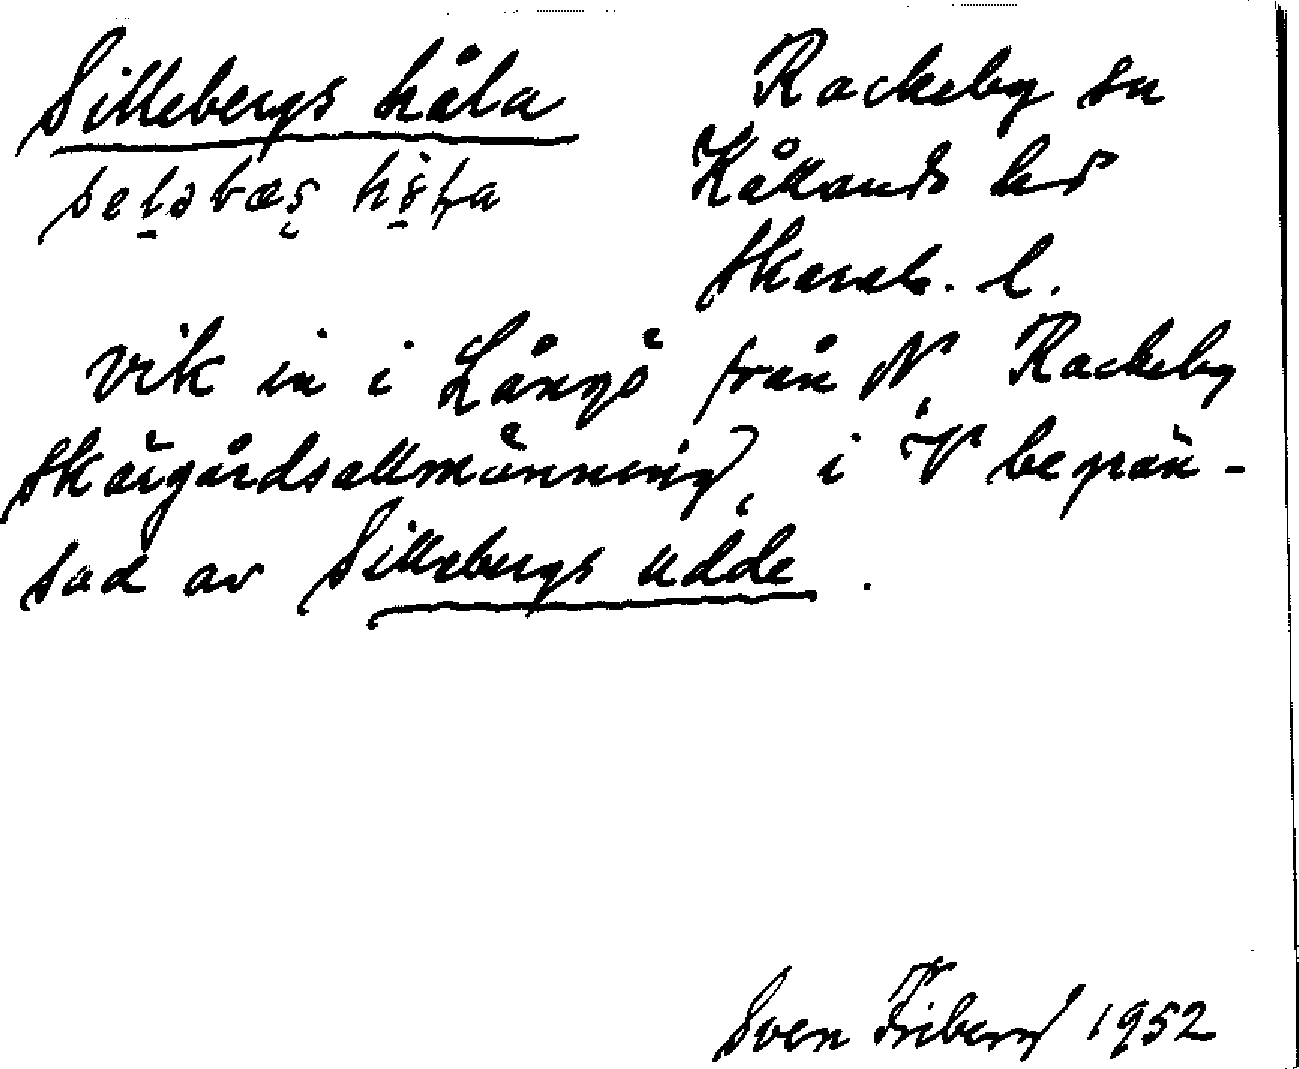 Sillebergs håla
Rackeby sn
Kållands hd
Skarab. l.
vik in i Långö från N, Rackeby
skärgårdsallmänning, i V begrän-
sad av Sillebergs udde.
Sven Friberg 1952